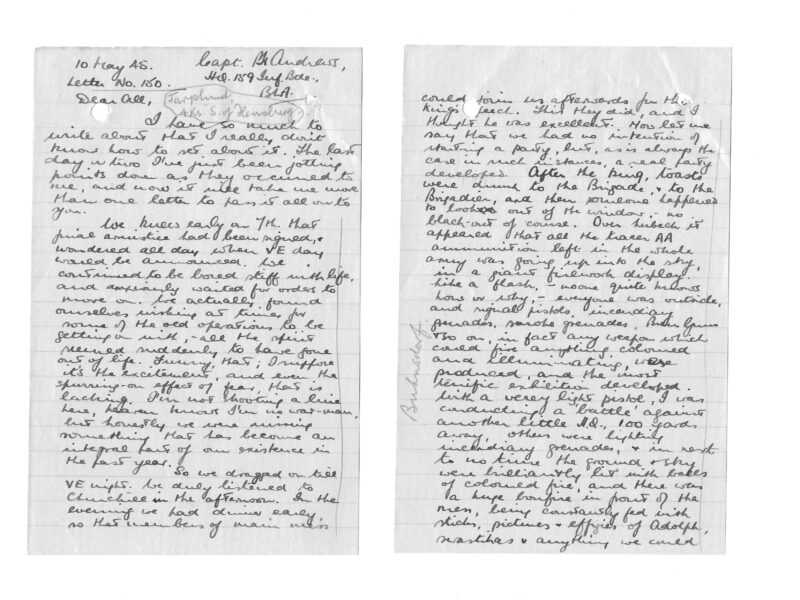 10 May 45.
Capt. Andrews,
Letter No. 150.
H.Q. 159 Inf. Bde.,
B.L.A.
Dear All,
S. of Flensburg
I have so much to
write about that I really don't
know how to set about it. The last
day or two I've just been jotting
points down as they occurred to
me, and now it will take me more
than one letter to pass it all on to
you.
We knew early on 7th. that
final armistice had been signed, &
wondered all day when VE day
would be announced. We
continued to be bored stiff with life,
and anxiously waited for order to
move on. We actually found
ourselves wishing at times for
some of the old operations to be
getting on with, - all the spirit
seemed suddenly to have gone
out of life. Funny, that; I suppose
it's the excitement, and even the
spurring-on effect of fear, that is
lacking. I'm not shooting a line
here, heaven knows I'm no war-man,
but honestly we were missing
something that has become an
integral part of our existence in
the past year.
So we dragged on till
VE night. We duly listened to
Churchill in the afternoon. In the
evening we had dinner early
so that members of main mess
could join us afterwards for the
King's speech. This they did, and I
thought he was excellent. Now let me
say that we had no intention of
starting a party, but, as is always the
case in such instances, a real party
developed. After the King, toasts
were drunk to the Brigade, & to the
Brigadier, and then someone happened
to look out of the window, - no
black-out of course. Over Lubeck it
appeared that all the tracer AA
ammunition left in the whole
army was going up into the sky,
in a giant firework display.
Like a flash, - noone quite knows
how or why, - everyone was outside,
and signal pistols, incendiary
grenades, smoke grenades, Bren Guns
& so on, in fact any weapon which
could fire anything coloured
and illuminating, were
produced, and the most
terrific exhibition developed.
With a verey light pistol, I was
conducting a 'battle' against
another little H.Q., 100 yards
away, others were lighting
incendiary grenades, & in next
to no time the ground & sky
were brilliantly lit with balls
of coloured fire, and there was
a huge bonfire in front of the
mess, being constantly fed with
sticks, pictures & effigies of Adolph,
swastikas & anything we could